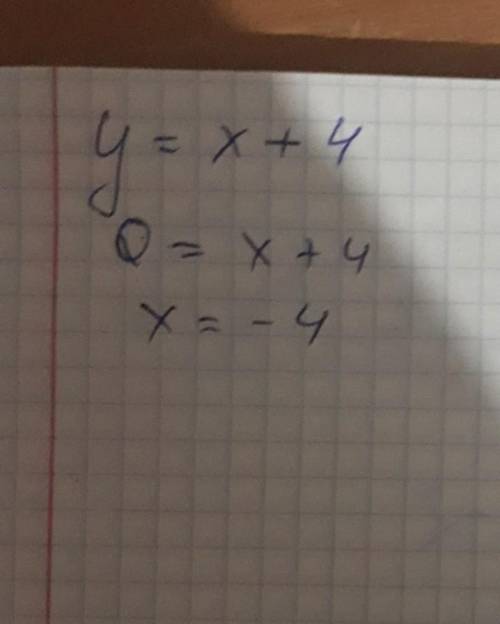 y = x + 4
0 = x + 4
x = - 4